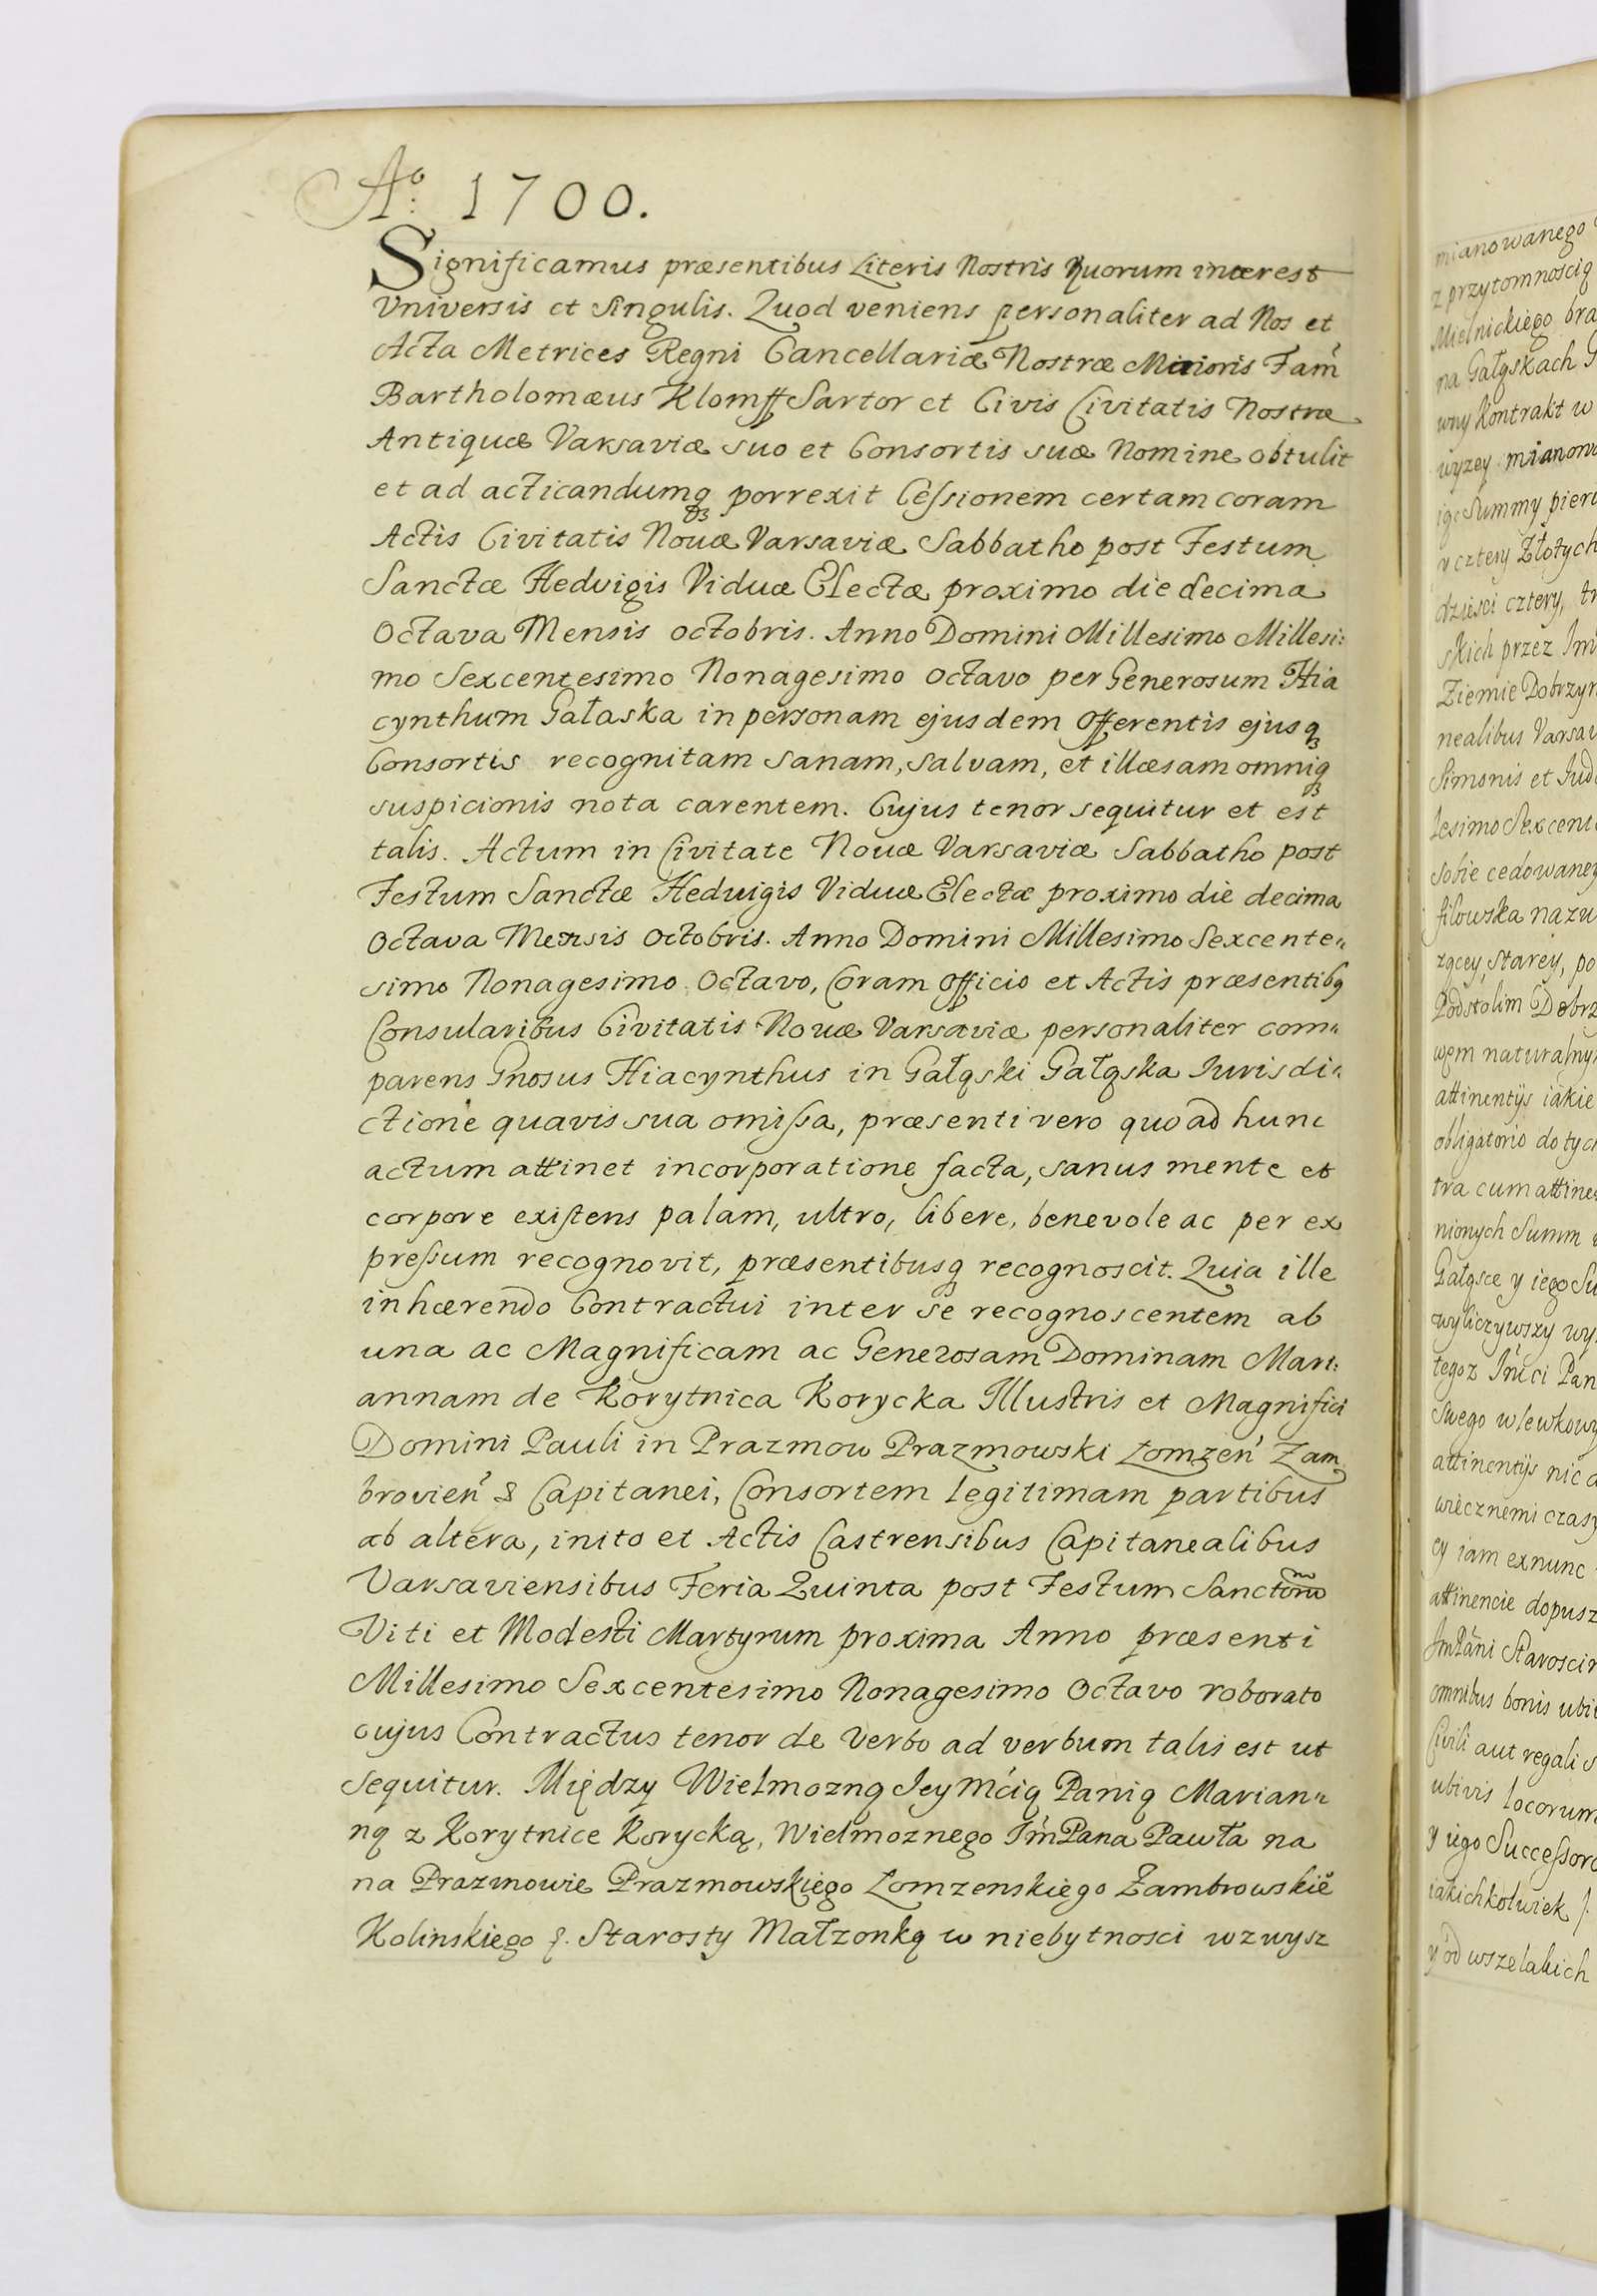 Aº: 1700.
Significamus præsentibus Literis Nostris Quorum interest
Universis et Singulis. Quod veniens personaliter ad Nos et
Acta Metrices Regni Cancellariæ Nostræ Maioris Fam̃
Bartholomæus Klomff Sartor et Civis Civitatis Nostræ
Antiquæ Varsaviæ suo et Consortis suæ Nomine obtulit
et ad acticandumqꝫ porrexit Ceſsionem certam coram
Actis Civitatis Nouæ Varsaviæ Sabbatho post Festum
Sanctæ Hedvigis Viduæ Electæ proximo die decima
Octava Mensis octobris. Anno Domini Millesimo Millesi:
mo Sexcentesimo Nonagesimo Octavo per Generosum Hia
cynthum Gałaska in personam ejusdem Offerentis ejusqꝫ
Consortis recognitam sanam, salvam, et illæsam omniqꝫ
suspicionis nota carentem. Cujus tenor sequitur et est
talis. Actum in Civitate Nouæ Varsaviæ Sabbatho post
Festum Sanctæ Hedvigis Viduæ Electæ proximo die decima
Octava Mensis Octobris. Anno Domini Millesimo Sexcente„
simo Nonagesimo Octavo, Coram Officio et Actis præsentibꝫ
Consularibus Civitatis Nouæ Varsaviæ personaliter com„
parens Gnosus Hiacynthus in Gałąski Gałąska Iurisdi„
ctione quavis sua omiſsa, præsenti vero quoad hunc
actum attinet incorporatione facta, sanus mente et
corpore exiſtens palam, ultro, libere, benevole ac per ex
preſsum recognovit, præsentibusqꝫ recognoscit. Quia ille
inhærendo Contractui inter se recognoscentem ab
una ac Magnificam ac Generosam Dominam Mari:
annam de Korytnica Korycka Illustris et Magnifici
Domini Pauli in Prazmow Prazmowski Łomzeń Zam
brovień & Capitanei, Consortem legitimam partibus
ab altera, inito et Actis Castrensibus Capitanealibus
Varsaviensibus Feria Quinta post Festum Sanctorũ
Viti et Modesti Martyrum proxima Anno præsenti
Millesimo Sexcentesimo Nonagesimo Octavo roborato
cujus Contractus tenor de Verbo ad verbum talis est ut
sequitur. Między Wielmozną Jey Mćią Panią Marian„
ną z Korytnice Korycką, Wielmoznego Jm̃ Pana Pawła na
na Prazmowie Prazmowskiego Lomzenskiego Zambrowskiẽ
Kolinskiego &. Starosty Małzonką w niebytnosci wzwysz
mianowanego
z przytomnoscią
Mielnickiego bra
na Gałąskach G
wny Kontrakt w
wyzey mianow
iąc Summy pierw
w cztery Złotych
dziesci cztery, tr
skich przez Im
Ziemie Dobrzyn
nealibus Varsav
Simonis et Jud
lesimo Sexcent
sobie cedowaney
filowska nazw
zącey, starey, po
Podstolim Dobrz
wem naturalny
attinentijs iakie
obligatorio do tych
tra cum attine
nionych Summ
Gałąsce y iego Su
wyliczywszy wy
tegoz Jm̃ci Pan
swego wlewkowy
attinentijs nic
wiecznemi czasy
cy iam exnunc
attinencie dopusz
JmPani Staroscin
omnibus bonis ubi
Civili aut regali s
ubivis locorum
y iego Succeſsoro
iakichkolwiek
y od wszelakich